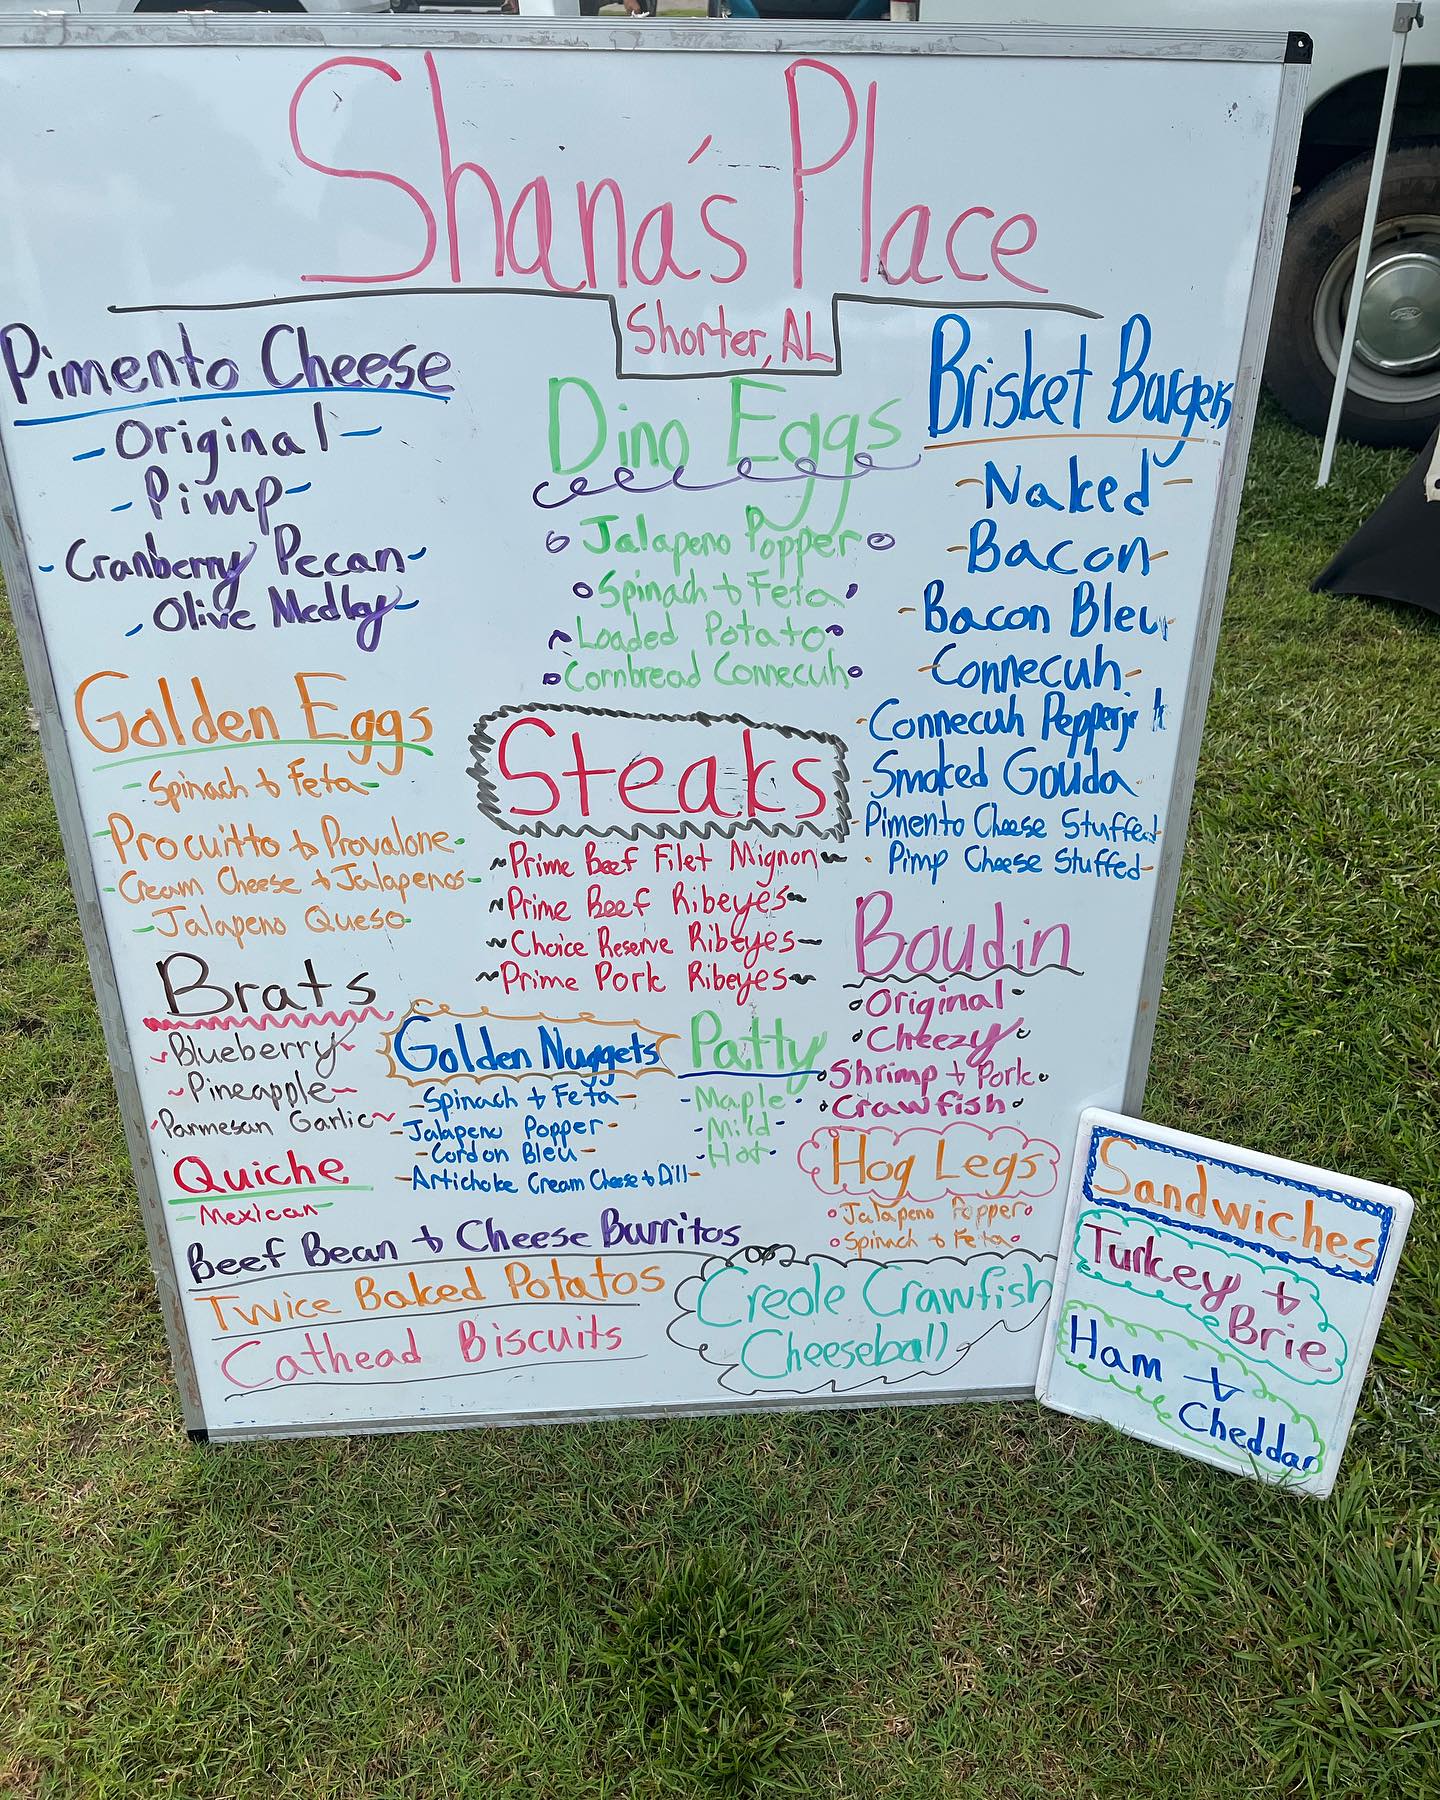 Shana's Place
Shorter, AL
Pimento Cheese
- Original -
- Pimp -
- Cranberry Pecan -
- Olive Medley -
Golden Eggs
- Spinach + Feta -
- Procuitto + Provalone -
- Cream Cheese + Jalapenos -
- Jalapeno Queso -
Brats
~ Blueberry ~
~ Pineapple ~
~ Parmesan Garlic ~
Quiche
- Mexican -
Dino Eggs
Jalapeno Popper
Spinach + Feta
Loaded Potato
Cornbread Connecuh
Steaks
~ Prime Beef Filet Mignon ~
~ Prime Beef Ribeyes ~
~ Choice Reserve Ribeyes ~
~ Prime Pork Ribeyes ~
Golden Nuggets
- Spinach + Feta -
- Jalapeno Popper -
- Cordon Bleu -
- Artichoke Cream Cheese + Dill -
Patty
- Maple -
- Mild -
- Hot -
Brisket Burgers
- Naked -
- Bacon -
- Bacon Bleu
- Connecuh -
- Connecuh Pepperjack
- Smoked Gouda -
- Pimento Cheese Stuffed -
- Pimp Cheese Stuffed -
Boudin
Original
Cheezy
Shrimp + Pork
Crawfish
Hog Legs
Jalapeno Popper
Spinach + Feta
Beef Bean + Cheese Burritos
Twice Baked Potatos
Cathead Biscuits
Creole Crawfish
Cheeseball
Sandwiches
Turkey +
Brie
Ham +
Cheddar